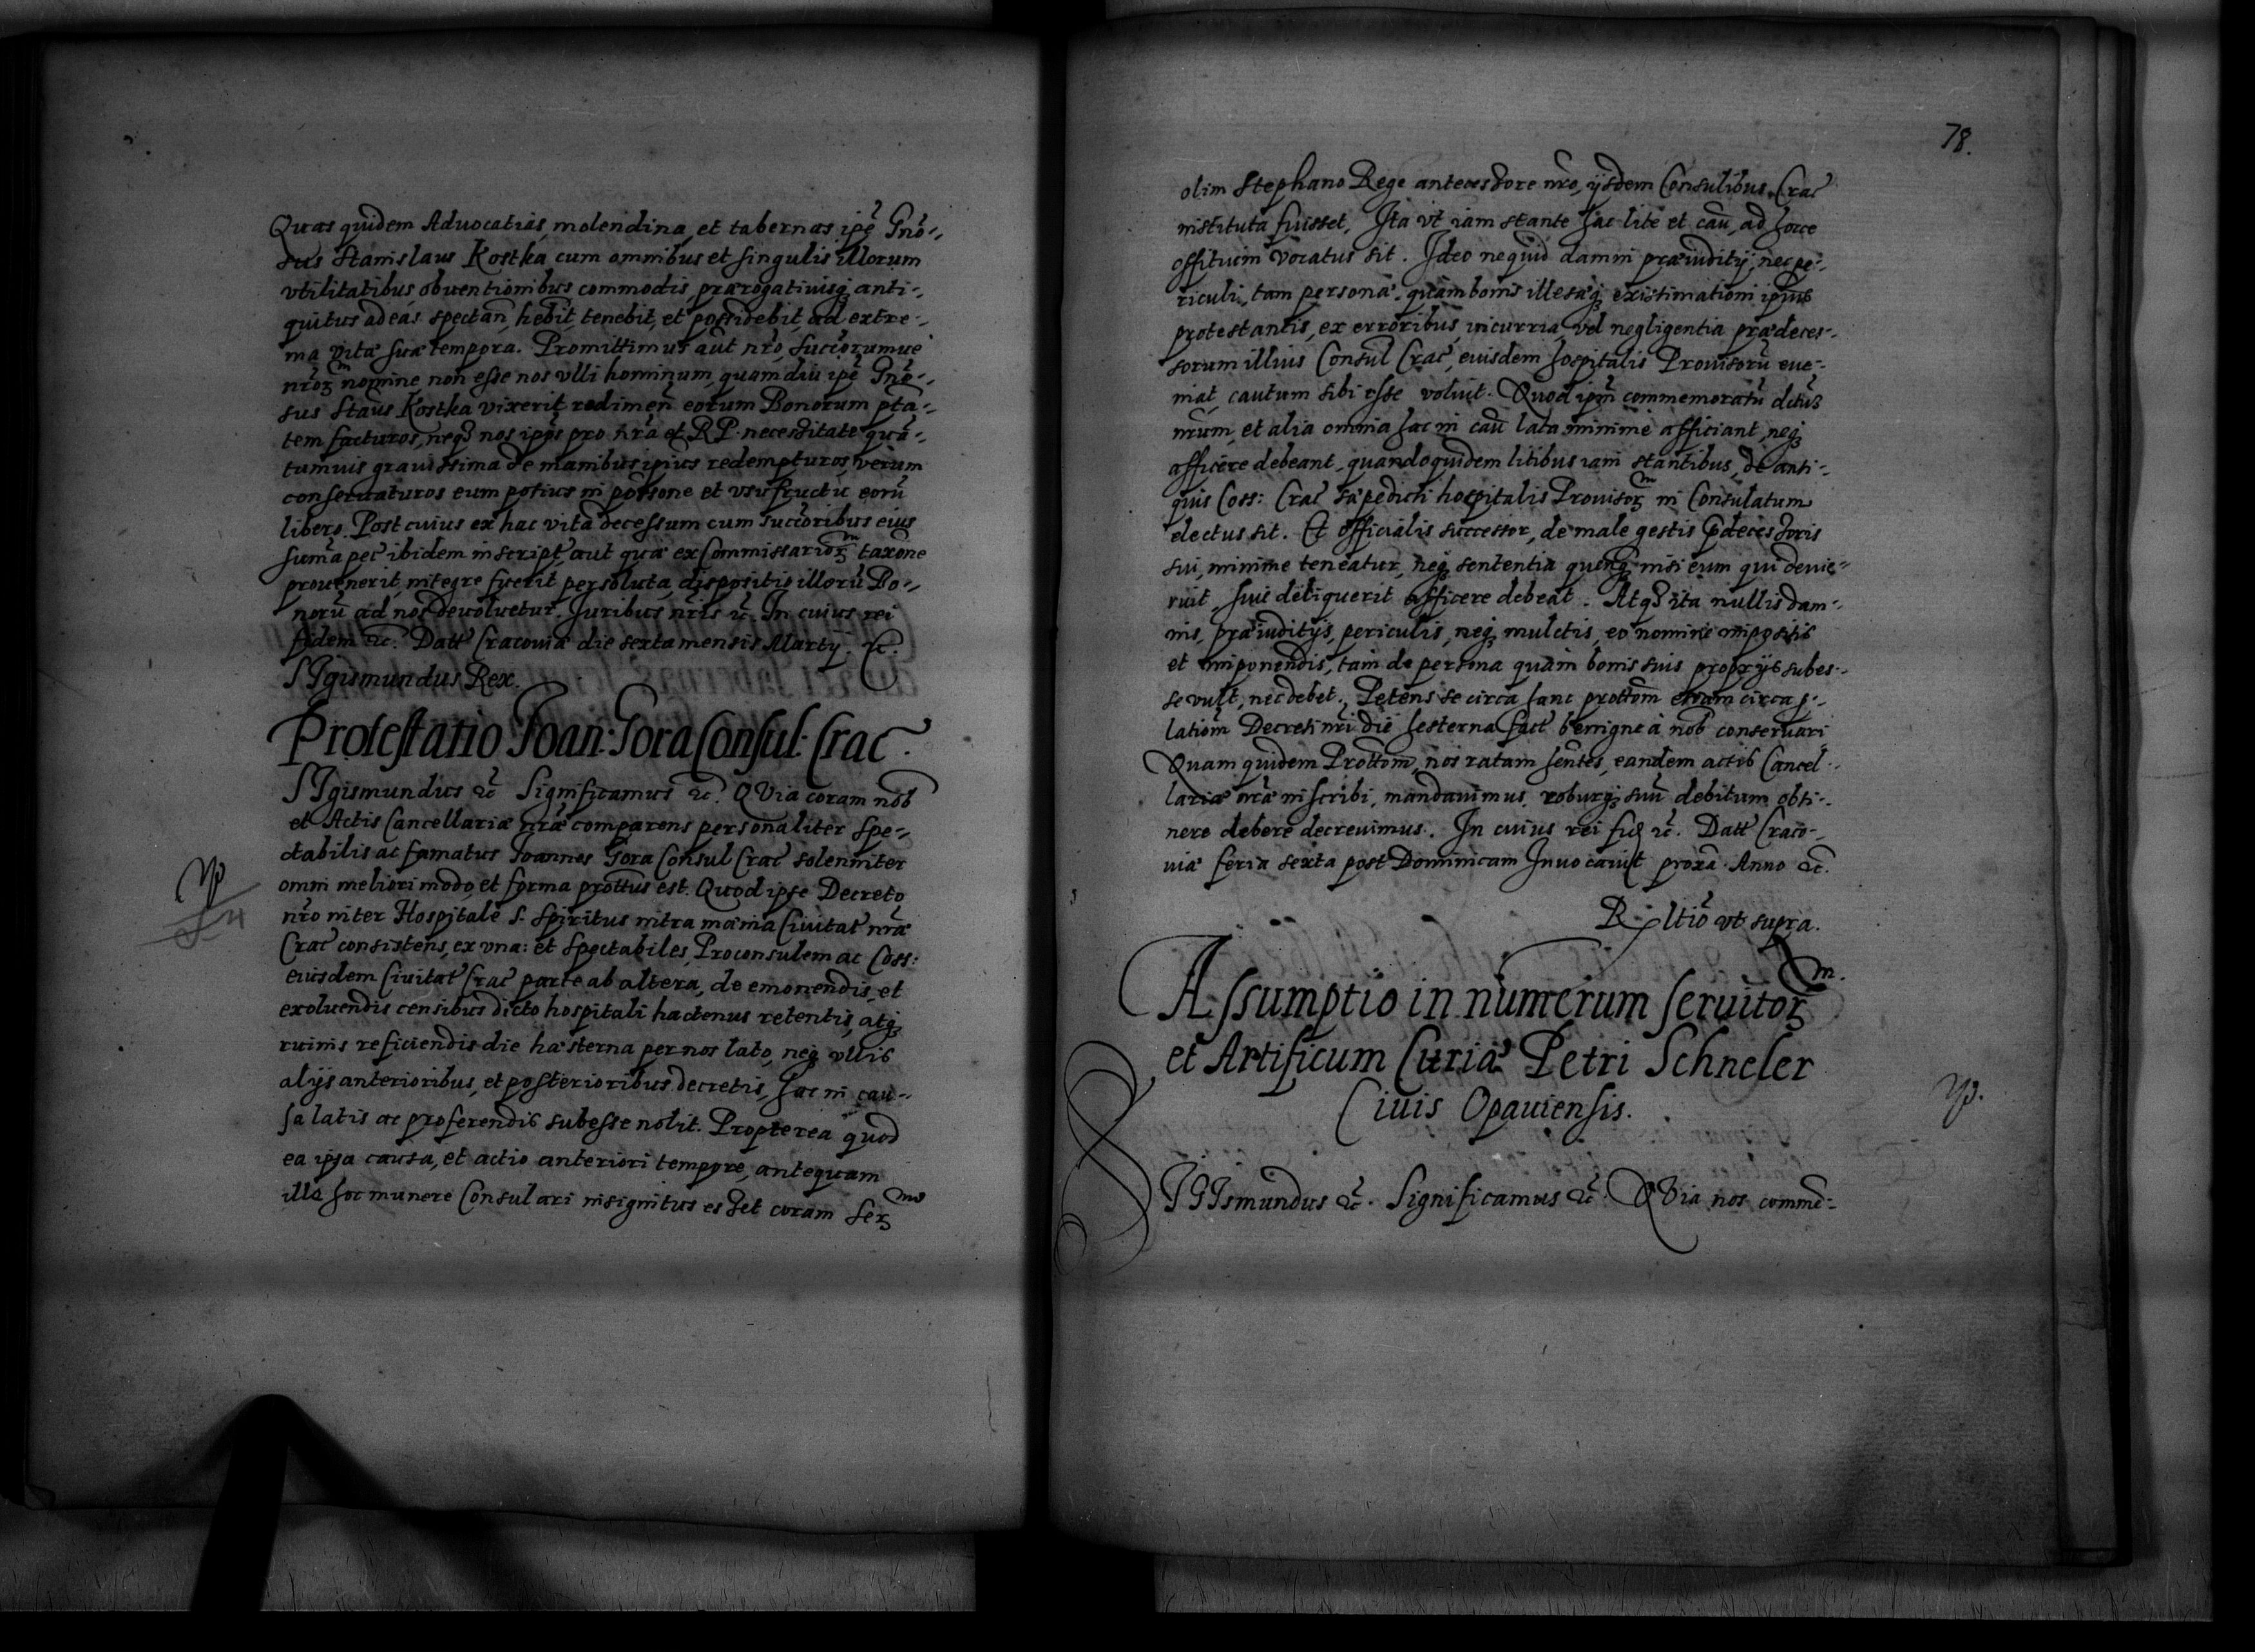 Quas quidem Aduocatias, molendina, et tabernas ipē Gnō-
sus Stanislaus Kostka cum omnibus et singulis illorum
vtilitatibus, obuentionibus commodis, prærogatiuisq, anti-
quitus ad eas spectan̄, hēbit, tenebit, et possidebit, ad extre-
ma vitæ suæ tempora. Promittimus aūt nr̄o, succ̄orumue
nr̄oꝝ nomine, non esse nos vlli hominum, quamdiu ipē Gnē-
sus Stan̄us Kostka vixerit redimen̄ eorum Bonorum ptā-
tem facturos, neqꝫ nos ipōs pro nr̄a et R P. necessitate quā-
tumuis grauissima de manibus ipius redempturos, verum
conseruaturos eum potius in possone et vsufructu eorū
libero. Post cuius ex hac vita decessum cum succ̄oribus eius
sum̄a pec̄ ibidem inscript, aut quæ ex Commissarioꝝ taxōne
prouenerit, integre fuerit persoluta, dispositio illorū Bo-
norū ad nos deuoluetur. Juribus nr̄is ꝛc̄. In cuius rei
fidem ꝛc̄. Datt Cracouiæ die sexta mensis Martij. ꝛc̄.
SIgismundus Rex.
Protestatio Joan: Gora Consul: Crac.
SIgismundus ꝛc̄ Significamus ꝛc̄. QVia coram nob
et Actis Cancellariæ nr̄æ comparens personaliter Spe-
ctabilis ac famatus Joannes Gora Consul Crac̄ solenniter
omni meliori modo, et forma prot̄tus est. Quod ipse Decreto
nr̄o inter Hospitale S. Spiritus intra mœnia Ciuitat nr̄æ
Crac̄ consistens, ex vna: et Spectabiles, Proconsulem ac Coss:
eiusdem Ciuitat Crac̄ parte ab altera, de emonendis, et
exoluendis censibus dicto hospitali hactenus retentis, atqꝫ
ruinis reficiendis die hæsterna per nos lato, neqꝫ vllis
alijs anterioribus, et posterioribus decretis, hac in cau-
sa latis ac proferendis subesse nolit. Propterea quod
ea ipsa causa, et actio anteriori tempore, antequam
ille hoc munere Consulari insignitus esset coram Serᵐᵒ
78.
olim Stephano Rege antecessore nr̄o, ijsdem Consulibus Crac̄
instituta fuisset. Ita vt iam stante hac lite et caū, ad hocce
offitium vocatus sit. Ideo nequid damni præiuditij, nec pe-
riculi, tam personæ, quam bonis illesæqꝫ existimationi ipius
protestantis, ex erroribus, incurria, vel negligentia prædeces-
sorum illius Consul Crac̄, eiusdem hospitalis Prouisorū eue-
niat, cautum sibi esse voluit. Quod ipm̄ commemoratū dc̄tus
nr̄um, et alia omnia hac in caū lata minime afficiant, neqꝫ
afficere debeant, quandoquidem litibus iam stantibus, de anti-
quis Coss: Crac̄ sæpedicti hospitalis Prouisoꝝ in Consulatum
electus sit. Et officialis successor, de male gestis p̄decessoris
sui, minime teneatur, neqꝫ sententia quenqꝫ nisi eum qui deuic-
rit, siue deliquerit afficere debeat. Atqꝫ ita nullis dam-
nis, præiuditijs, periculis, neqꝫ mulctis, eo nomine impositis
et imponendis, tam de persona quam bonis suis proprijs subes-
se vult, nec debet. Petens se circa hanc protto͞m etiam circa p-
lationm̄ Decreti nr̄i die hesterna fact benigne à nob conseruari
Quam quidem Prottōm, nos ratam hēntes, eandem actis Cancel-
lariæ nr̄æ inscribi, mandauimus, roburqꝫ suū debitum obti-
nere debere decreuimus. In cuius rei fid ꝛc̄. Datt Craco-
uiæ feria sexta post Dominicam Inuocauit proxā Anno ꝛc̄.
Rltiō vt supra.
Assumptio in numerum seruitoꝝ
et Artificum Curiæ Petri Schneler
Ciuis Opauiensis.
SIGIsmundus ꝛc̄. Significamus ꝛc̄. QVia nos commē-